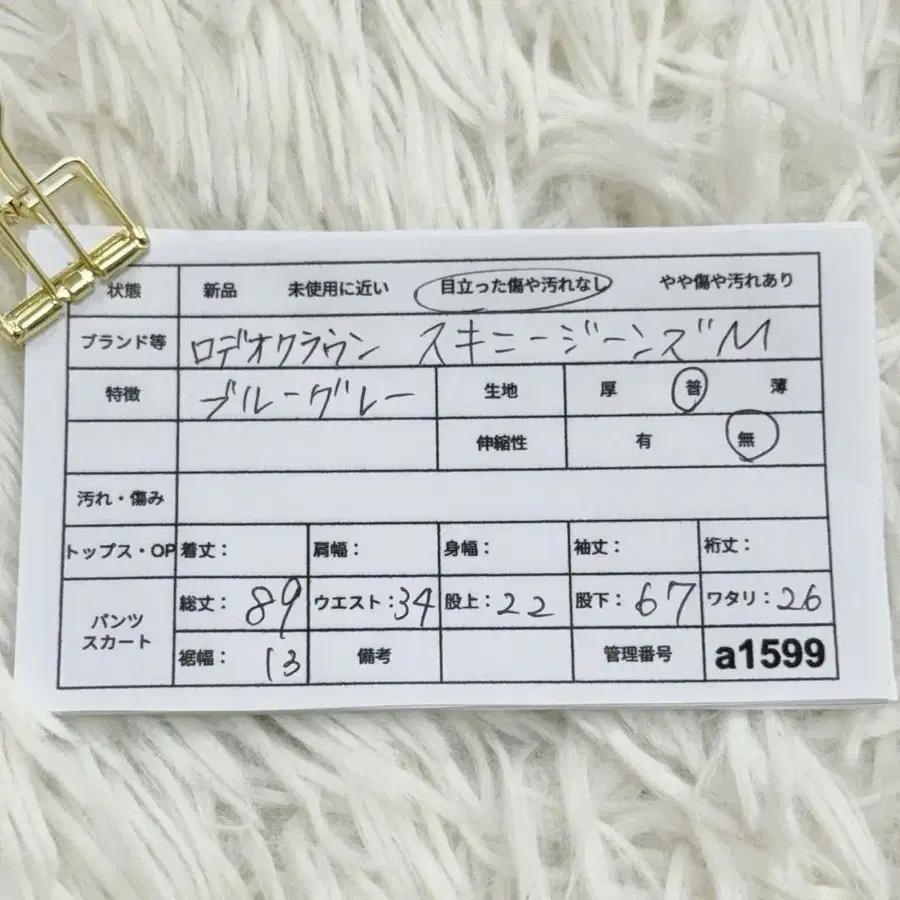 状態 新品 未使用に近い 目立った傷や汚れなし やや傷や汚れあり
ブランド等 ロデオクラウン スキニージーンズM
特徴 ブルーグレー 生地 厚 普 薄
伸縮性 有 無
汚れ・傷み
トップス・OP 着丈: 肩幅: 身幅: 袖丈: 裄丈:
パンツ スカート 総丈: 89 ウエスト: 34 股上: 22 股下: 67 ワタリ: 26
裾幅: 13 備考 管理番号 a1599